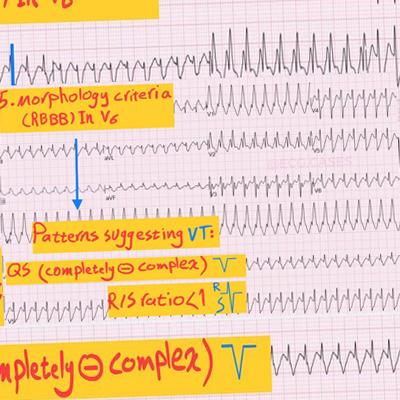 In V6
5. morphology criteria
(RBBB) In V6
V1
V4
aVL
V2
V5
aVF
V3
V6
Patterns suggesting VT:
QS (completely ⊖ complex)
R/S ratio<1 R
S
mpletely ⊖ complex)